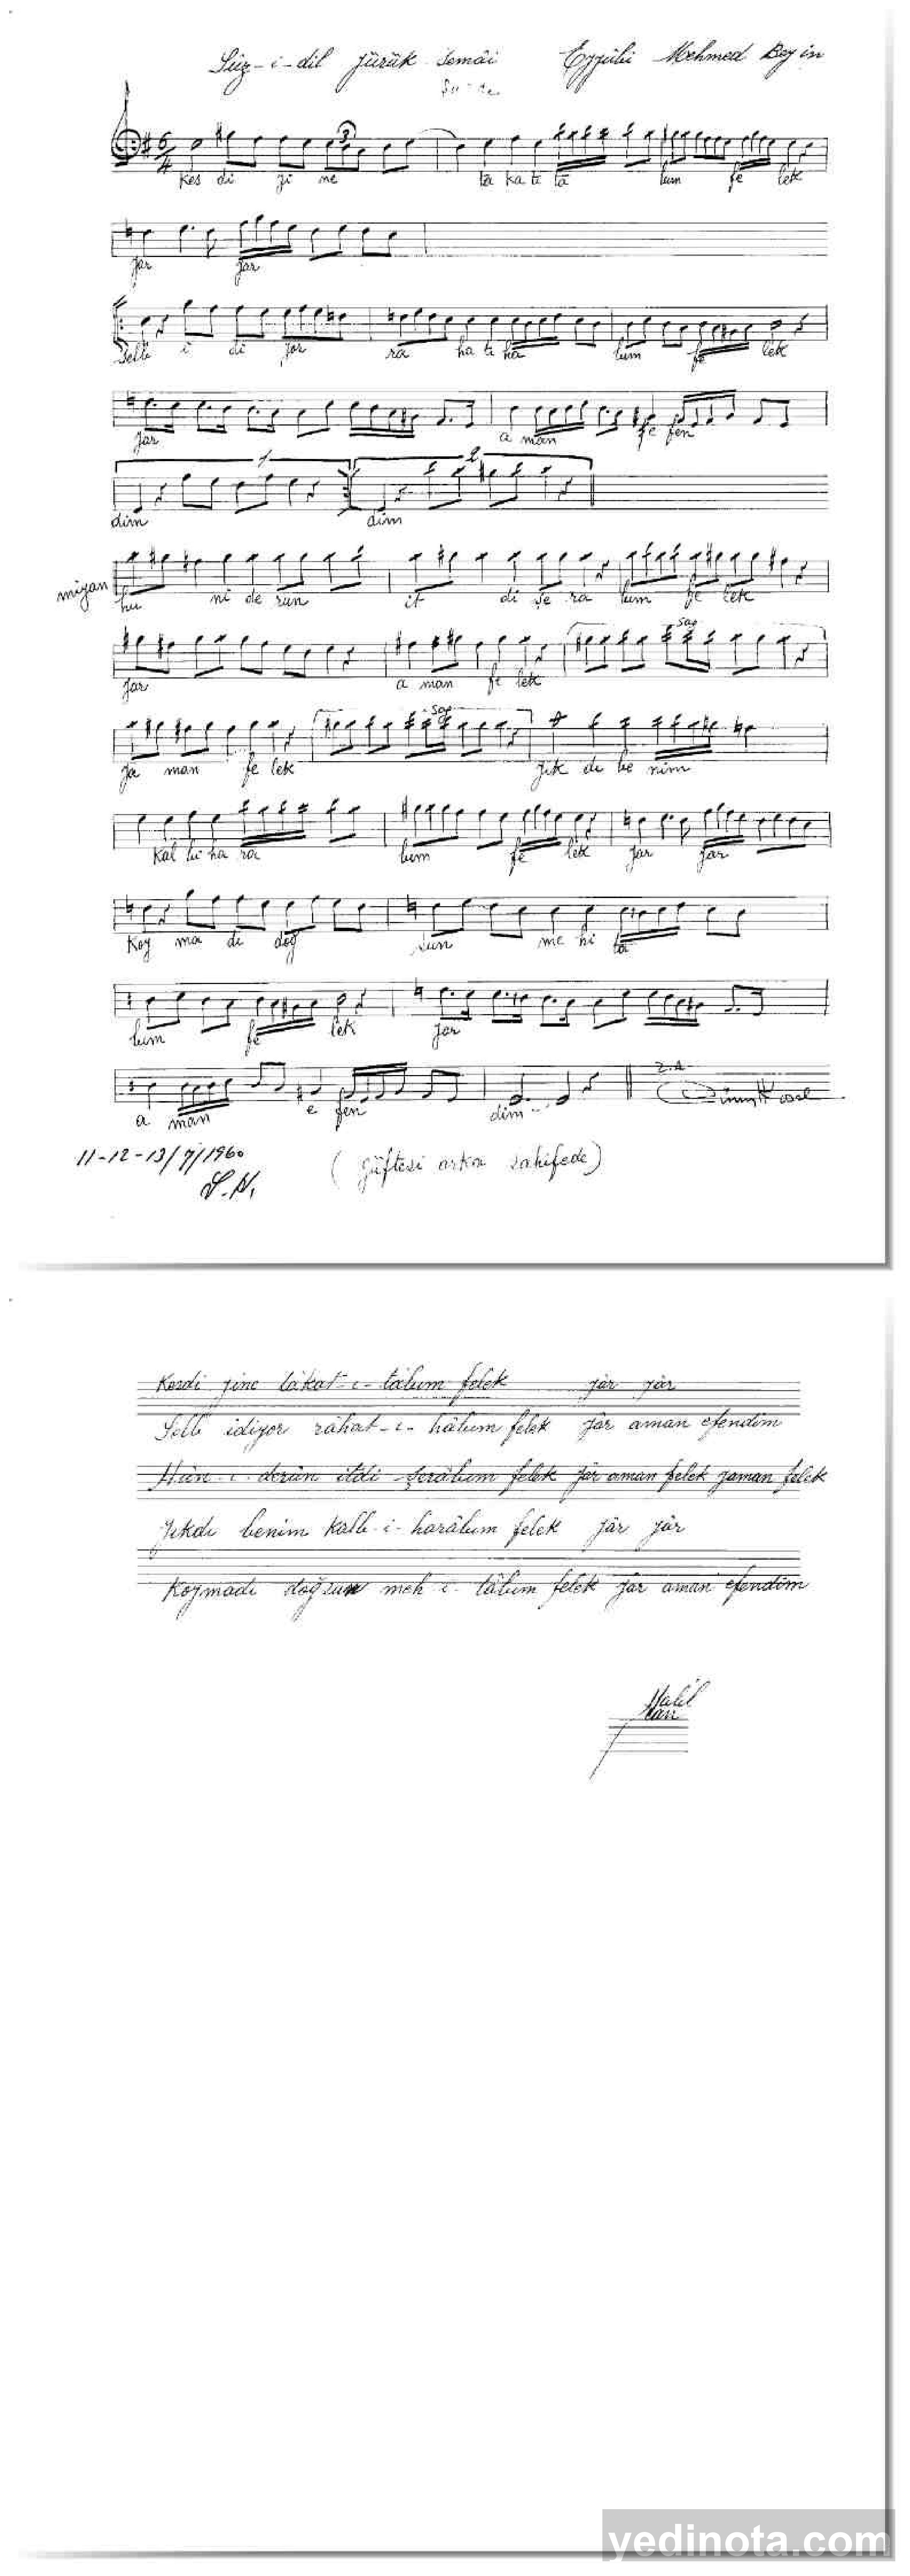 Sûz-i-dil Yürük Semâi Eyyübi Mehmed Bey in
6/4
3
Kes di yi ne tâ ka tı tâ lum fe lek
Yar Yar
Selb i di yor ra ha tı ha lum fe lek
Yar a man e fen
1 2
dim dim
miyan hu ni de run it di şe ra lum fe lek
Sap
Yar a man fe lek
Sap
Ya man fe lek Yık dı be nim
Kal bi ha ra lum fe lek Yar Yar
Koy ma dı doğ sun me hi ta
lum fe lek Yar
a man e fen dim
11-12-13/7/1960
(Güftesi arka sahifede)
Kesdi yine tâkat-ı-tâlum felek yâr yâr
Selb idiyor râhat-ı-hâlum felek yâr aman efendim
Hûn-i-derûn itdi şerâlum felek yâr aman felek yaman felek
Yıkdı benim Kalb-i-harâlum felek yâr yâr
Koymadı doğsun meh-i-tâlum felek yâr aman efendim
Halil
Can
yedinota.com